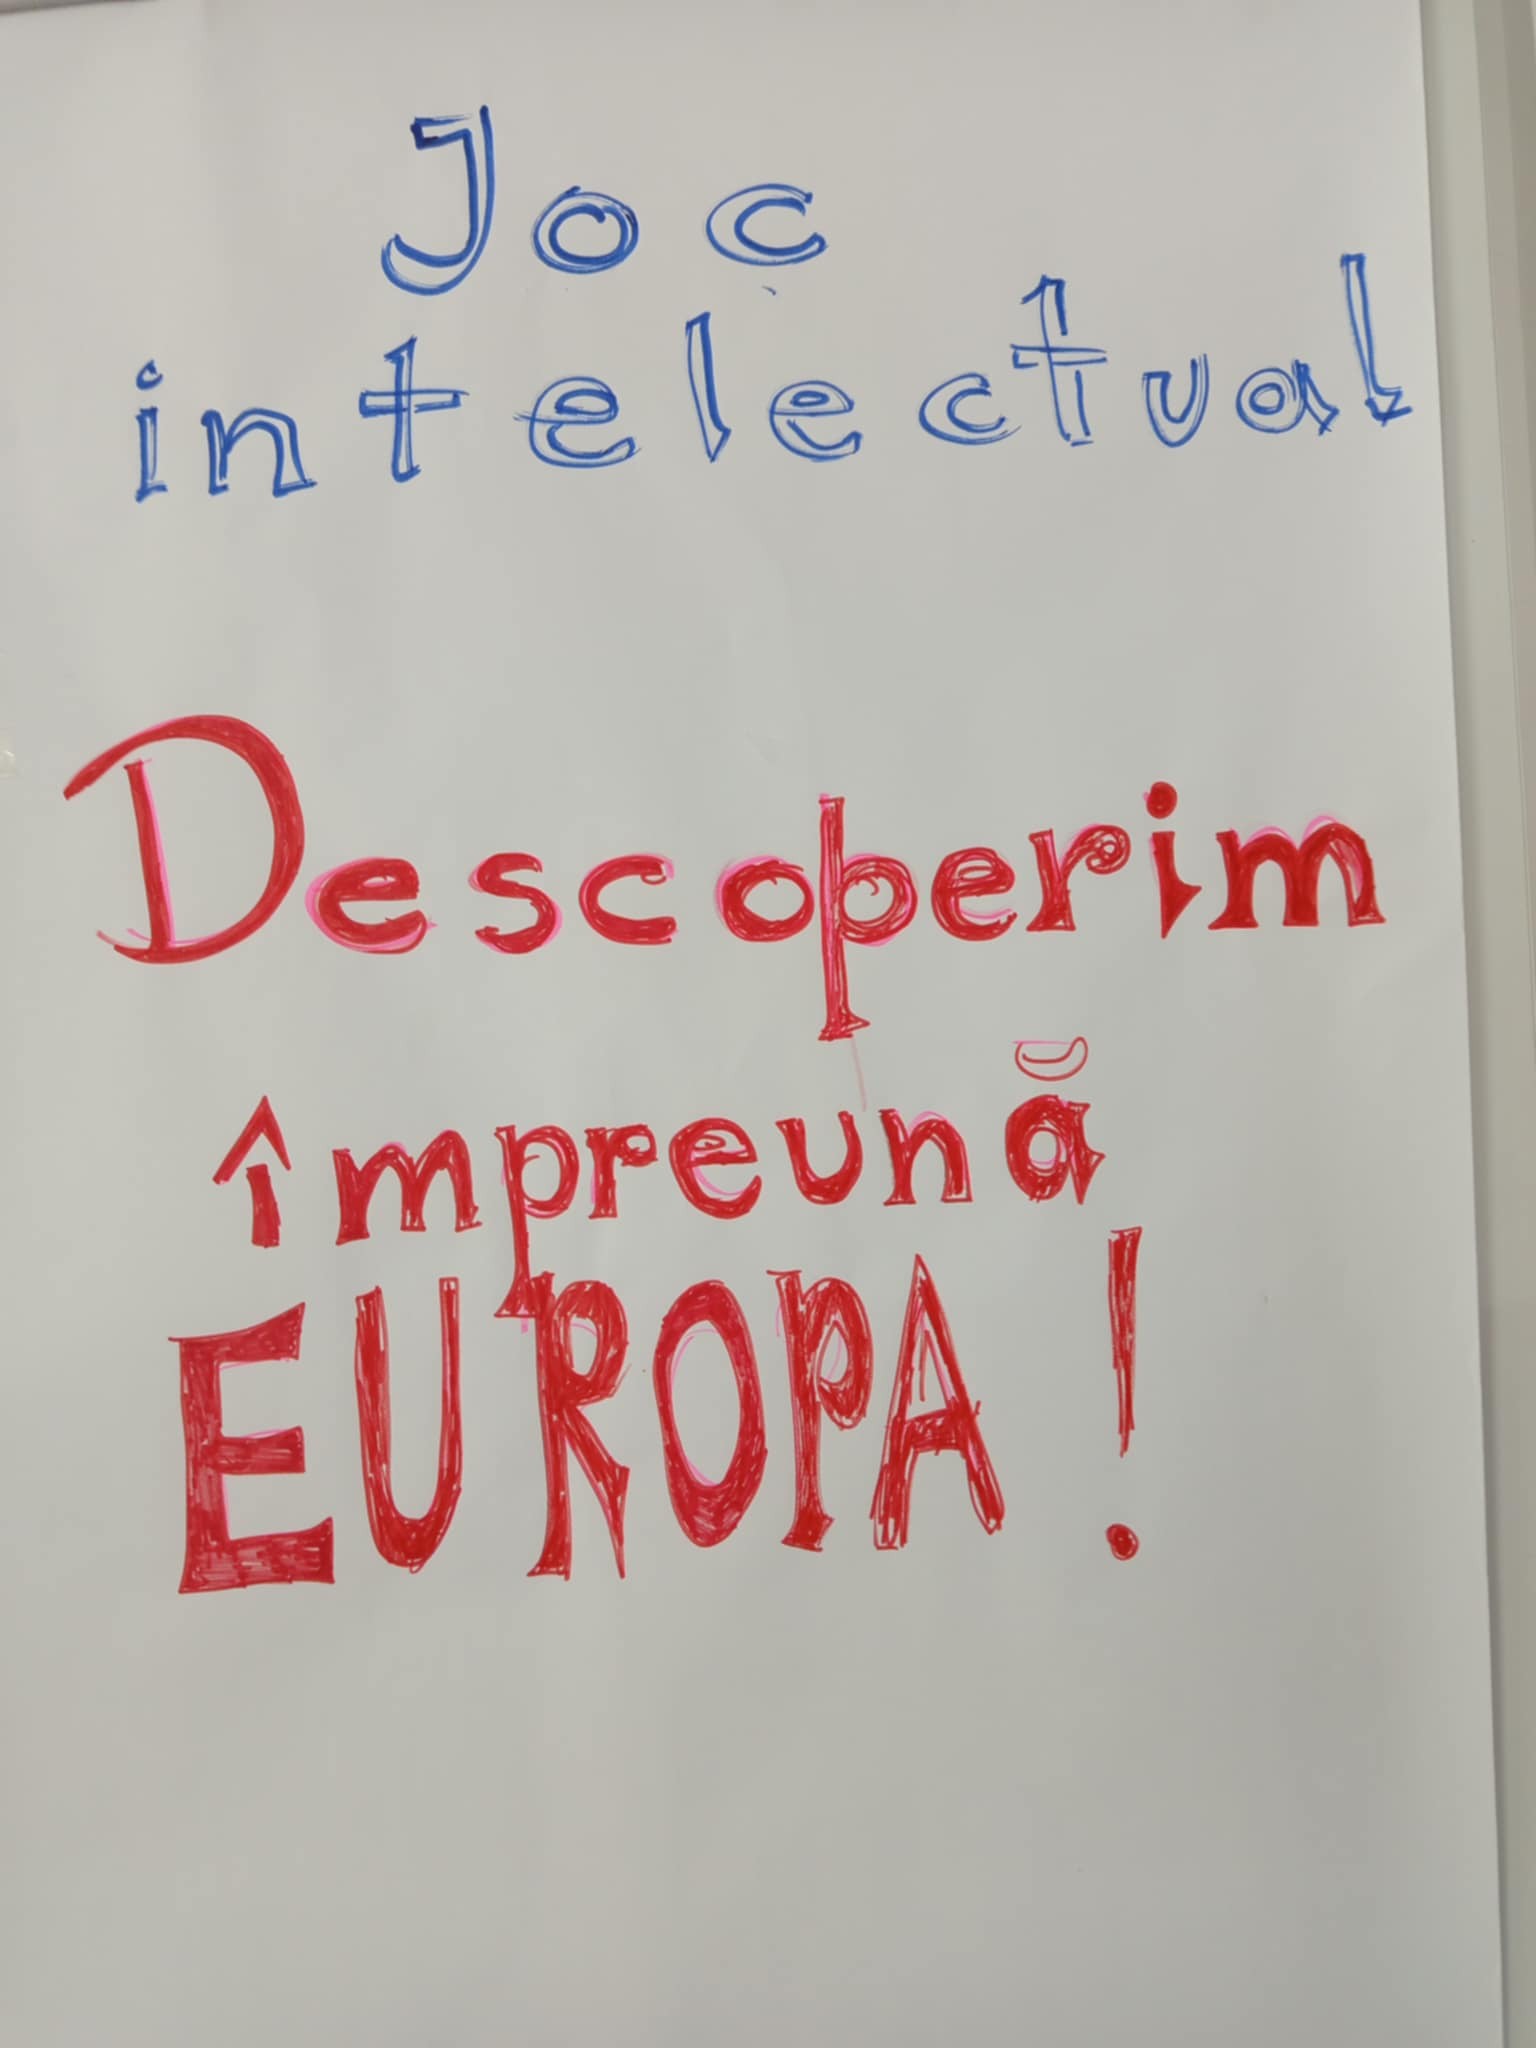 Joc
intelectual
Descoperim
împreună
EUROPA!